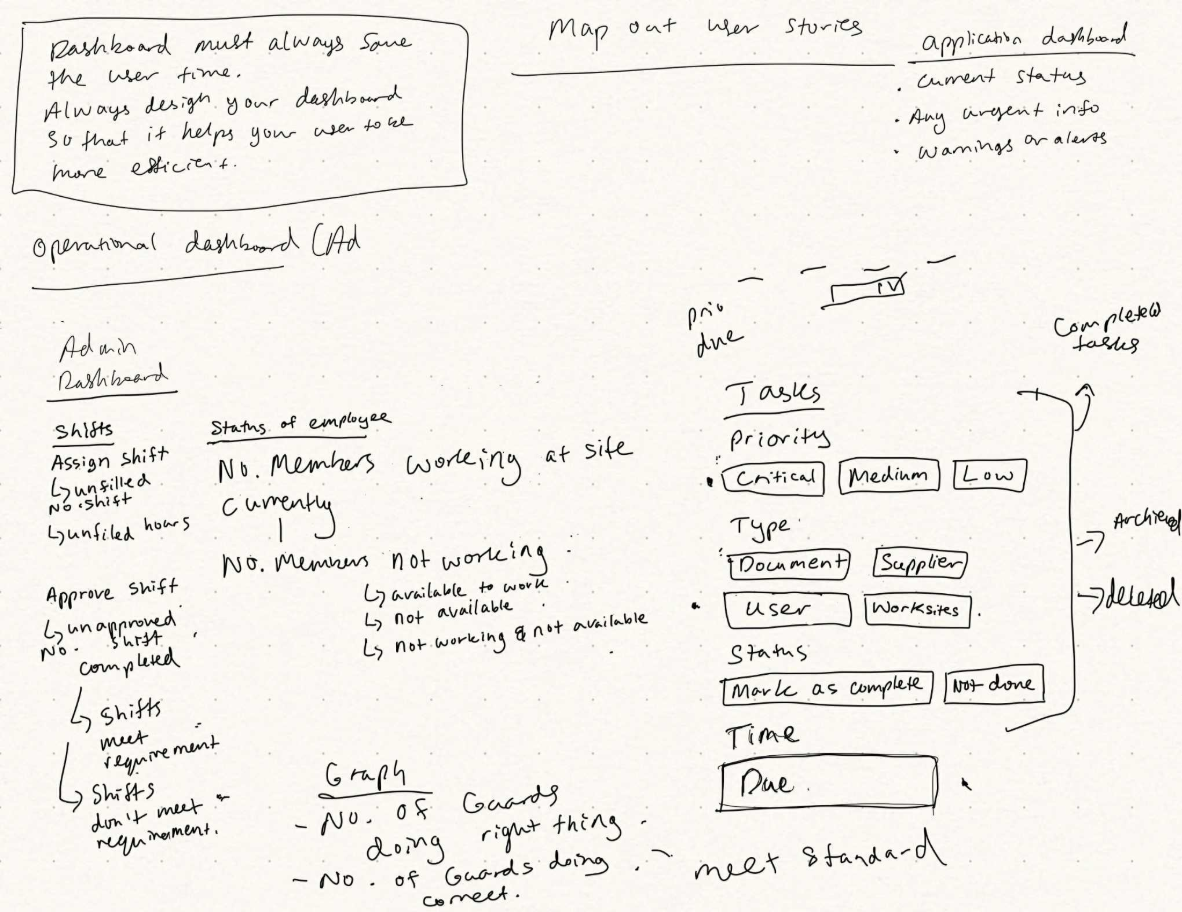 Dashboard must always save
the user time.
Always design your dashboard
so that it helps your user to be
more efficient.
Map out user stories
application dashboard
. current status
. Any urgent info
. warnings or alerts
Operational dashboard (Ad
Admin
Dashboard
Shifts
Assign shift
↳ unfilled
No. shift
↳ unfiled hours
Approve shift
↳ unapproved
No. shift
completed
↳ Shifts
meet
requirement
↳ Shifts
don't meet
requirement.
Status of employee
No. Members working at site
Currently
No. Members not working
↳ available to work
↳ not available
↳ not working & not available
Graph
- No. of Guards
doing right thing
- No. of Guards doing
correct.
meet standard
prio
due
Tasks
Priority
Critical Medium Low
Type
Document Supplier
User Worksites
Status
Mark as complete Not done
Time
Due
Completed
tasks
→ Archived
→ deleted